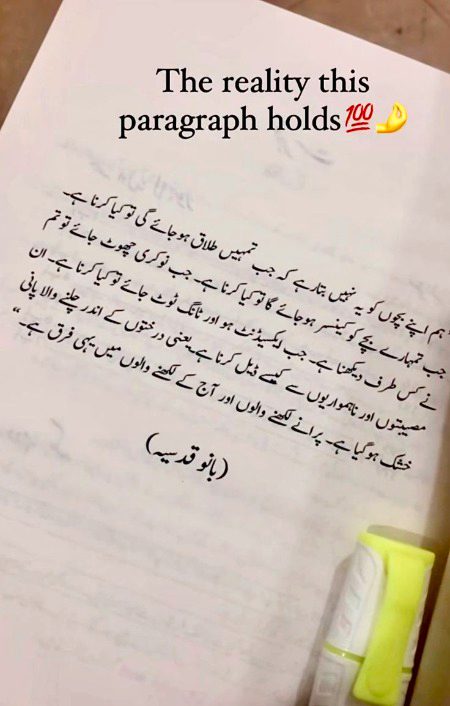 The reality this
paragraph holds💯🤌
"ہم اپنے بچوں کو یہ نہیں بتا رہے کہ جب تمہیں طلاق ہو جائے گی تو کیا کرنا ہے۔
جب تمہارے بچے کو کینسر ہو جائے گا تو کیا کرنا ہے۔ جب نوکری چھوٹ جائے تو تم
نے کس طرف دیکھنا ہے۔ جب ایکسیڈنٹ ہو اور ٹانگ ٹوٹ جائے تو کیا کرنا ہے۔ ان
مصیبتوں اور ناہمواریوں سے کیسے ڈیل کرنا ہے یعنی درختوں کے اندر چلنے والا پانی
خشک ہو گیا ہے۔ پرانے لکھنے والوں اور آج کے لکھنے والوں میں یہی فرق ہے۔"
(بانو قدسیہ)